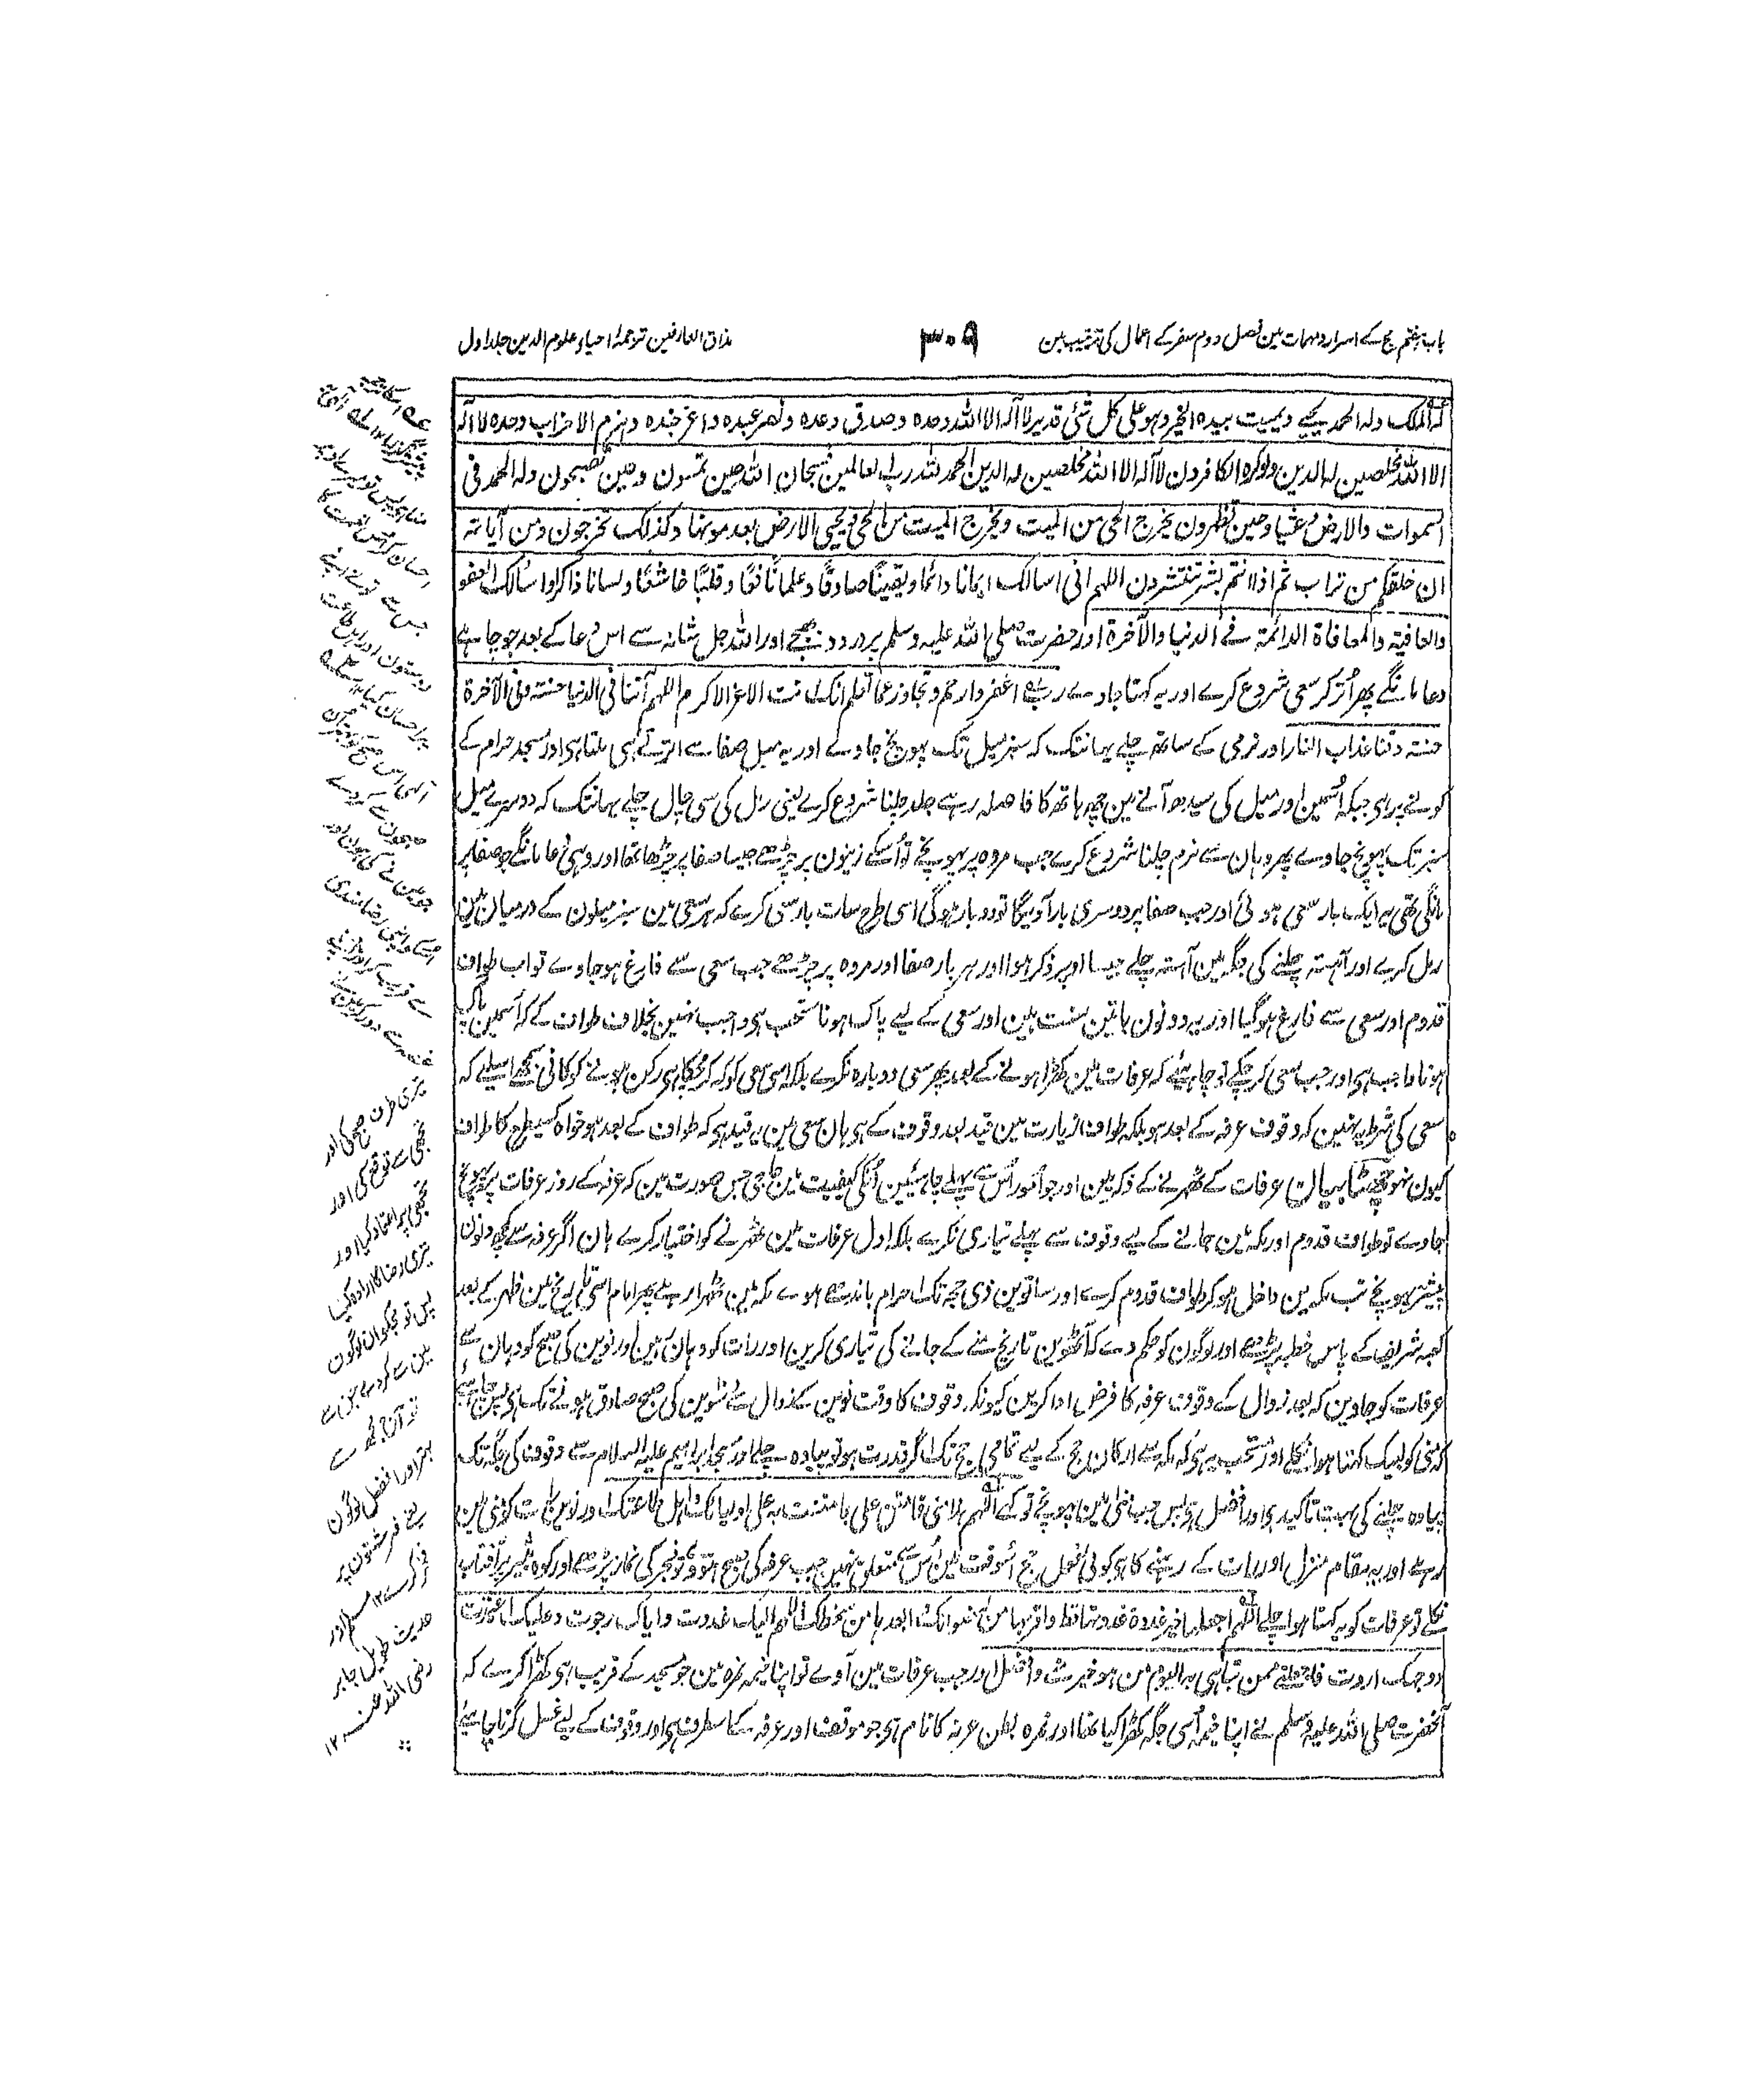 باب ہفتم حج کے اسرار و مہمات مین فصل دوم سفر کے اعمال کی ترتیب مین
۳۰۹
مذاق العارفین ترجمۂ احیاء علوم الدین جلد اول
لہ الملک ولہ الحمد یحیی ویمیت بیدہ الخیر وہو علی کل شئی قدیر لا آلہ الا اللہ وحدہ وصدق وعدہ ونصر عبدہ واعز جندہ وہزم الاحزاب وحدہ لا آلہ
الا اللہ مخلصین لہ الدین ولو کرہ الکافرون لا آلہ الا اللہ مخلصین لہ الدین الحمد للہ رب العالمین فسبحان اللہ حین تمسون وحین تصبحون ولہ الحمد فی
السموات والارض وعشیا وحین تظہرون یخرج الحی من المیت ویخرج المیت من الحی ویحیی الارض بعد موتہا وکذلک تخرجون ومن آیاتہ
ان خلقکم من تراب ثم اذا انتم بشر تنتشرون اللہم انی اسالک ایمانا دائما ویقینًا صادقًا وعلما نافعًا وقلبًا خاشعًا ولسانا ذاکرا واسالک العفو
والعافیۃ والمعافاۃ الدائمۃ فے الدنیا والآخرۃ اور حضرت صلی اللہ علیہ وسلم پر درود بھیجے اور اللہ جل شانہ سے اس دعا کے بعد جو چاہے
دعا مانگے پھر اُتر کر سعی شروع کرے اور یہ کہتا جاوے رب اغفر وارحم وتجاوز عما تعلم انک انت الاعز الاکرم اللہم آتنا فی الدنیا حسنتہ وفی الآخرۃ
حسنتہ وقنا عذاب النار اور نرمی کے ساتھ چلے یہانتک کہ سبز میل تک پہونچ جاوے اور یہ میل صفا سے اترتے ہی ملتا ہی اور مسجد حرام کے
کونے پر ہی جبکہ اُسمین اور میل کی سیدھ آنے مین چھ ہاتھ کا فاصلہ رہے جلد چلنا شروع کرے یعنی رمل کی سی چال چلے یہانتک کہ دوسرے میل
سبز تک پہونچ جاوے پھر وہان سے نرم چلنا شروع کرے جب مروہ پر پہونچے تو اُسکے زینون پر چڑھے جیسا صفا پر چڑھا تھا اور وہی دعا مانگے جو صفا پر
مانگی تھی یہ ایک بار سعی ہوئی اور جب صفا پر دوسری بار آویگا تو دو بار ہوگی اسی طرح سات بار سعی کرے کہ ہر سعی مین سبز میلون کے درمیان مین
رمل کرے اور آہستہ چلنے کی جگہ مین آہستہ چلے جیسا اوپر ذکر ہوا اور ہر بار صفا اور مروہ پر چڑھے جب سعی سے فارغ ہو جاوے تو اب طواف
قدوم اور سعی سے فارغ ہو گیا اور یہ دونون باتین سنت ہین اور سعی کے لیے پاک ہونا مستحب ہی واجب نہین بخلاف طواف کے کہ اُسمین پاک
ہونا واجب ہی اور جب سعی کر چکے تو چاہیئے کہ عرفات مین کھڑا ہونے کے بعد پھر سعی دوبارہ نکرے بلکہ اسی سعی کو کہ کر چکا ہی رکن ہونے کو کافی سمجھے اسلیے کہ
سعی کی شرط یہ نہین کہ وقوف عرفہ کے بعد ہو بلکہ طواف زیارت مین قید بعد وقوف کے ہی ہان سعی مین یہ قید ہی کہ طواف کے بعد ہو خواہ کسیطرح کا طواف
کیون نہو چھٹا بیان عرفات کے ٹھہرنے کے ذکر مین اور جو اُمور اُس سے پہلے چاہیئین اُنکی کیفیت مین حاجی جس صورت مین کہ عرفہ کے روز عرفات پر پہونچ
جاوے تو طواف قدوم اور مکہ مین جانے کے لیے وقوف سے پہلے تیاری نکرے بلکہ اول عرفات مین ٹھہرنے کو اختیار کرے ہان اگر عرفہ سے کچھ دنون
پیشتر پہونچے تب مکہ مین داخل ہو کر طواف قدوم کرے اور ساتوین ذی حجہ تک احرام باندھے ہوے مکہ مین ٹھہرا رہے پھر امام اسی تاریخ مین ظہر کے بعد
کعبہ شریف کے پاس خطبہ پڑھے اور لوگون کو حکم دے کہ آٹھوین تاریخ منے کے جانے کی تیاری کرین اور رات کو وہان رہین اور نوین کی صبح کو وہان سے
عرفات کو جاوین کہ بعد زوال کے وقوف عرفہ کا فرض ادا کرین کیونکہ وقوف کا وقت نوین کے زوال سے دسوین کی صبح صادق ہونے تک ہی پس چاہیے
کہ منی کو لبیک کہتا ہوا نکلے اور مستحب یہ ہی کہ مکہ سے ارکان حج کے لیے تمامی حج تک اگر قدرت ہو تو پیادہ چلے اور مسجد ابراہیم علیہ السلام سے وقوف کی جگہ تک
پیادہ چلنے کی بہت تاکید ہی اور افضل ہی پس جب منی مین پہونچے تو کہے اللہم ہذا منی فامنن علی بما مننت بہ علی اولیائک واہل طاعتک اور نوین رات کو منی مین
رہے اور یہ مقام منزل اور رات کے رہنے کا ہی کوئی فعل حج اُسوقت مین اُس سے متعلق نہین جب عرفہ کی صبح ہو تو فجر کی نماز پڑھے اور کوہ ثبیر پر آفتاب
نکلے تو عرفات کو یہ کہتا ہوا چلے اللہم اجعلہا خیر غدوۃ غدوتہا قط واقربہا من رضوانک وابعدہا من سخطک اللہم الیک غدوت وایاک رجوت وعلیک اعتمدت
ووجہک اردت فاجعلنے ممن تباہی بہ الیوم من ہو خیر منی وافضل اور جب عرفات مین آوے تو اپنا خیمہ نمرہ مین جو مسجد کے قریب ہی کھڑا کرے کہ
آنحضرت صلی اللہ علیہ وسلم نے اپنا خیمہ اُسی جگہ کھڑا کیا تھا اور نمرہ بطن عرنہ کا نام ہی جو موقف اور عرفہ کے اسطرف ہی اور وقوف کے لیے غسل کرنا چاہیئے
احسان کر جس نعمت کا
جس سے تونے اپنے
دوستون اور اہل طاعت
پر احسان کیا
الہی اس صبح کو
صبحون سے کردے
جو مین نے کی ہون اور
اپنی رضامندی
سے قریب کر اور اپنے
غصہ سے دور کر
تیری طرف صبح کی اور
تجھی سے توقع کی اور
تجھی پر اعتماد کیا اور
تیری رضا کا ارادہ کیا
پس تو مجکو ان لوگون
مین سے کردے جن سے
تو آج مجھ سے
بہتر اور افضل لوگون
یعنے فرشتون پر
فخر کرے ۱۲ مسلم اور
حدیث طویل جابر
رضی اللہ عنہ ۱۲